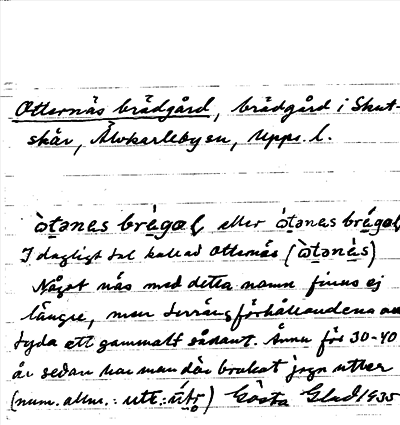 Otternäs brädgård, brädgård i Skut-
skär, Älvkarleby sn, Upps. l.
òtanes brégaɭ eller ótanes brégaɭ
I dagligt tal kallad Otternäs (òtanés)
Något näs med detta namn finns ej
längre, men terrängförhållandena an-
tyda ett gammalt sådant. Ännu för 30-40
år sedan har man där brukat jaga utter
(num. allm.: utt: útr) Gösta Glad 1935